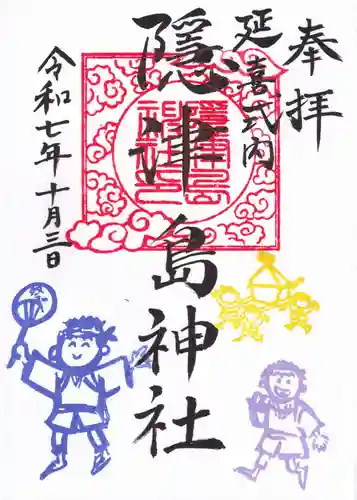 奉拝
延喜式内
隠津島神社
令和七年十月三日
祭